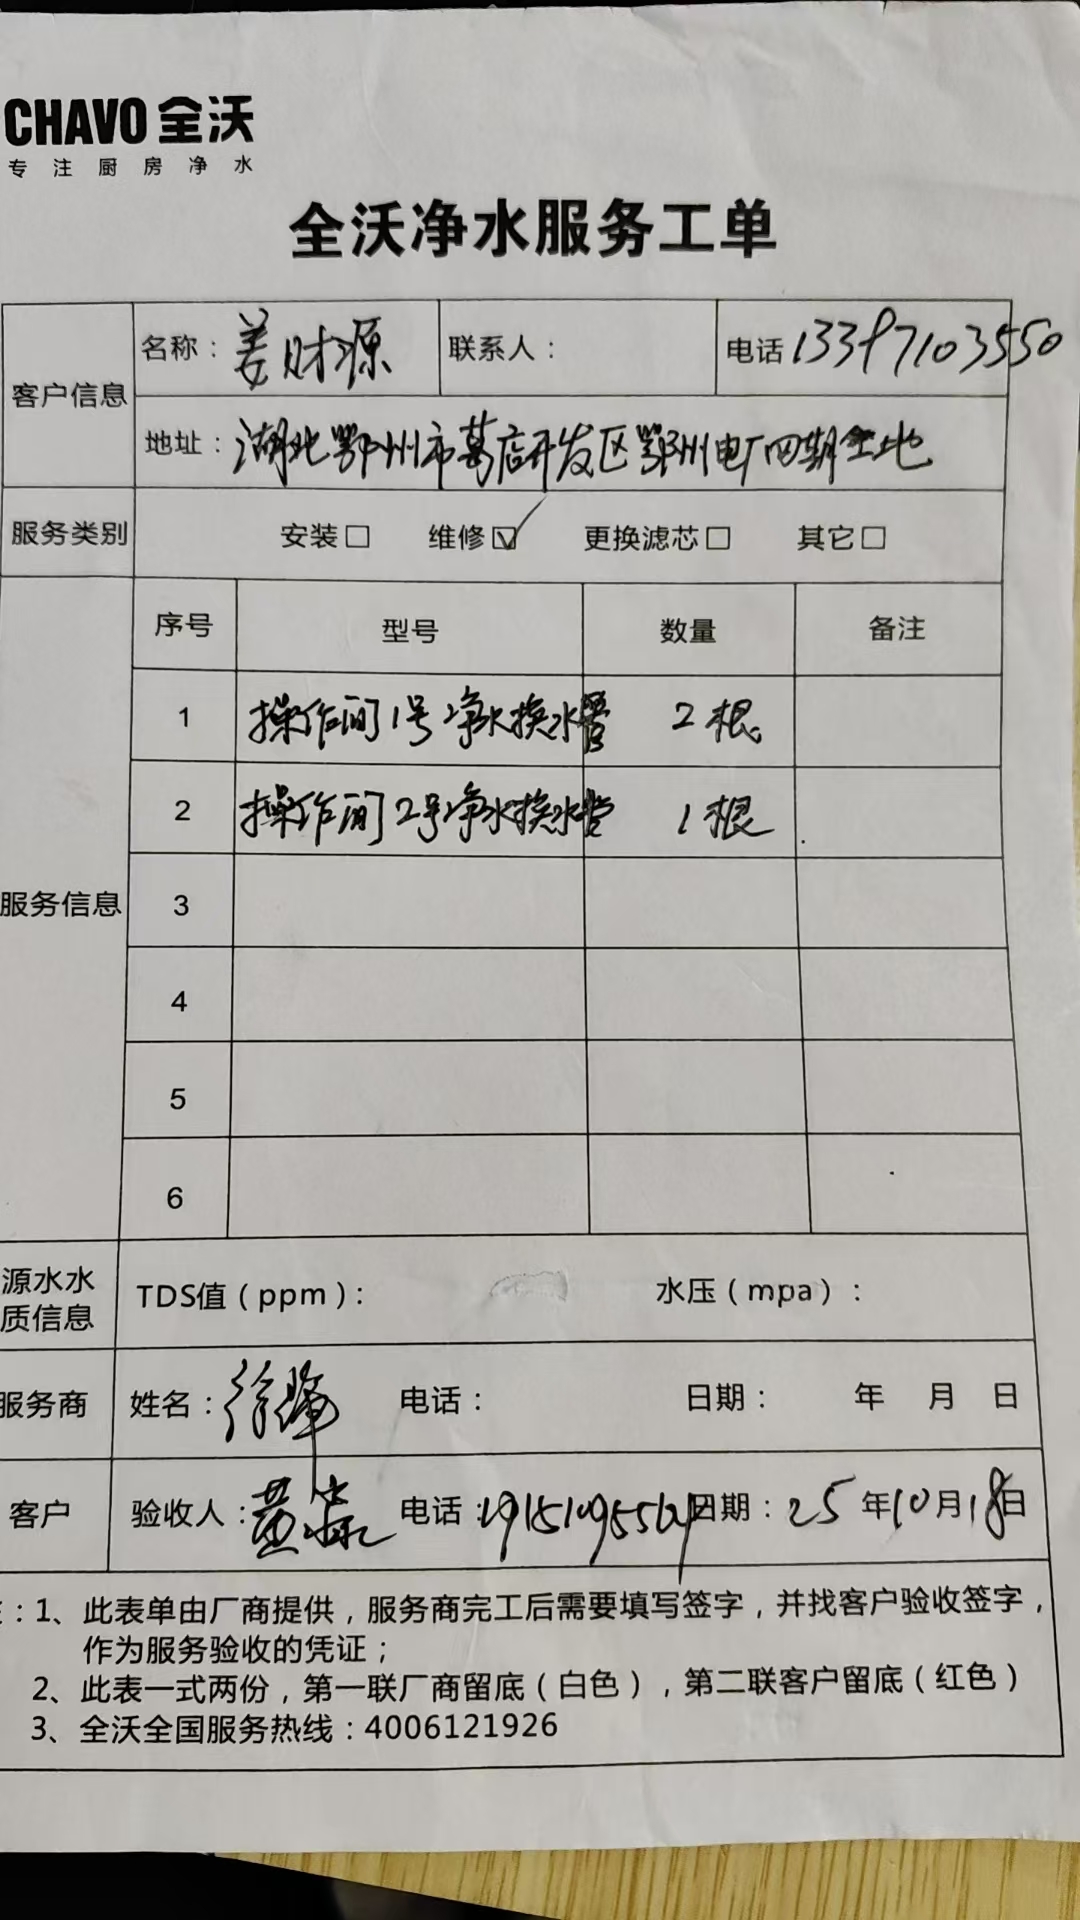 CHAVO 全沃
专注厨房净水
全沃净水服务工单
客户信息 名称：姜财源 联系人： 电话 13397103550
地址：湖北鄂州市葛店开发区鄂州电厂四期工地
服务类别 安装□ 维修☑ 更换滤芯□ 其它□
服务信息
序号 型号 数量 备注
1 操作间1号净水换水管 2根
2 操作间2号净水换水管 1根
3
4
5
6
源水水质信息 TDS值（ppm）： 水压（mpa）：
服务商 姓名：徐 电话： 日期： 年 月 日
客户 验收人：黄 电话： 日期：25年10月18日
：1、此表单由厂商提供，服务商完工后需要填写签字，并找客户验收签字，
作为服务验收的凭证；
2、此表一式两份，第一联厂商留底（白色），第二联客户留底（红色）
3、全沃全国服务热线：4006121926